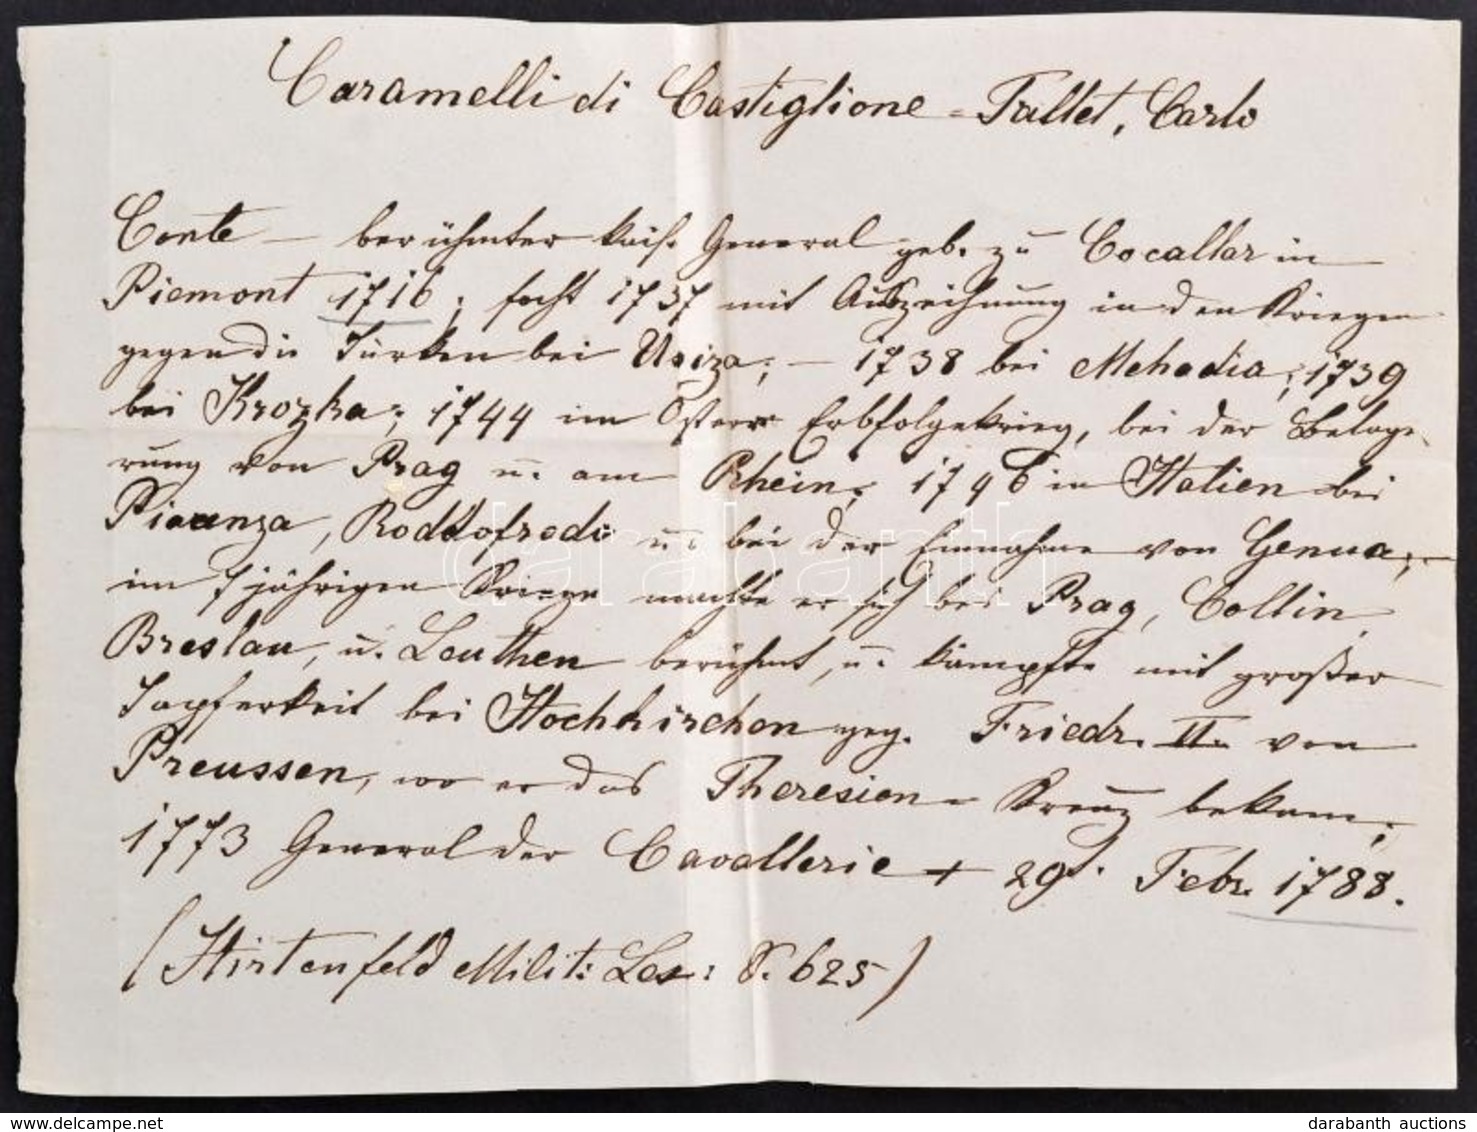 Caramelli di Castiglione-Fallet, Carlo
Conte – berühmter kais. General geb. zu Cocallar in
Piemont 1716; focht 1737 mit Auszeichnung in den Kriegen
gegen die Türken bei Usiza; – 1738 bei Mehadia; 1739
bei Krozka; 1744 im Österr Erbfolgekrieg, bei der Belage-
rung von Prag u. am Rhein; 1746 in Italien bei
Piacenza, Rottofredo u. bei der Einnahme von Genua; –
im 7jährigen Kriege machte er sich bei Prag, Collin,
Breslau, u. Leuthen berühmt, u. kämpfte mit großer
Tapferkeit bei Hochkirchen geg. Friedr. II. von
Preussen, wo er das Theresien-Kreuz bekam;
1773 General der Cavallerie + 29t. Febr. 1788.
(Hirtenfeld Milit: Lex: S. 625)
darabanth
darabanth auctions
www.delcampe.net